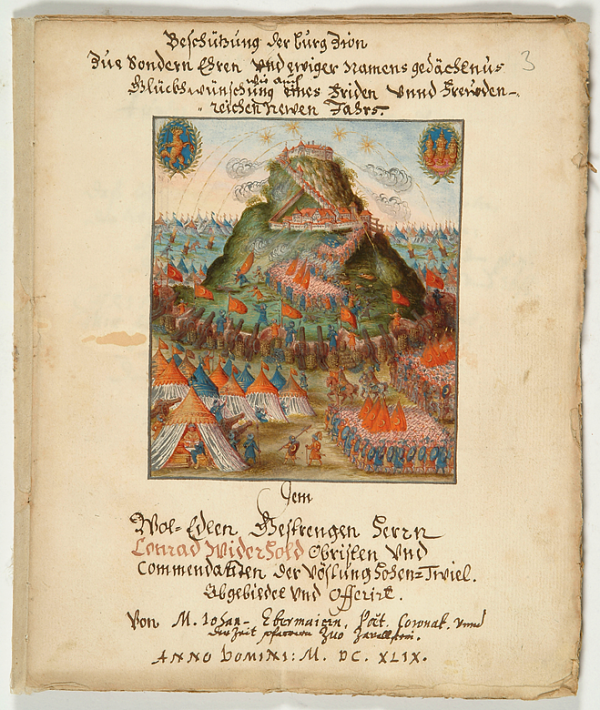 Beschützung der burg Zion
3
Zue Sondern Ehren Vnd ewiger Namens gedächtnus
wie auch
Glückhwünschung eines Friden Vnnd Frewden-
reichen newen Jahrs.
Dem
Wol-Edlen Gestrengen Herrn
Conrad Widerhold Obristen Vnd
Commendanten der Vöstung Hohen-Twiel.
Abgebildet Vnd Offerirt.
Von M. Iohan- Ebermaiern, Poët. Coronat. Vnnd
der Zeit pfarrern Zuo Zavellstein.
ANNO DOMINI: M. DC. XLIX.